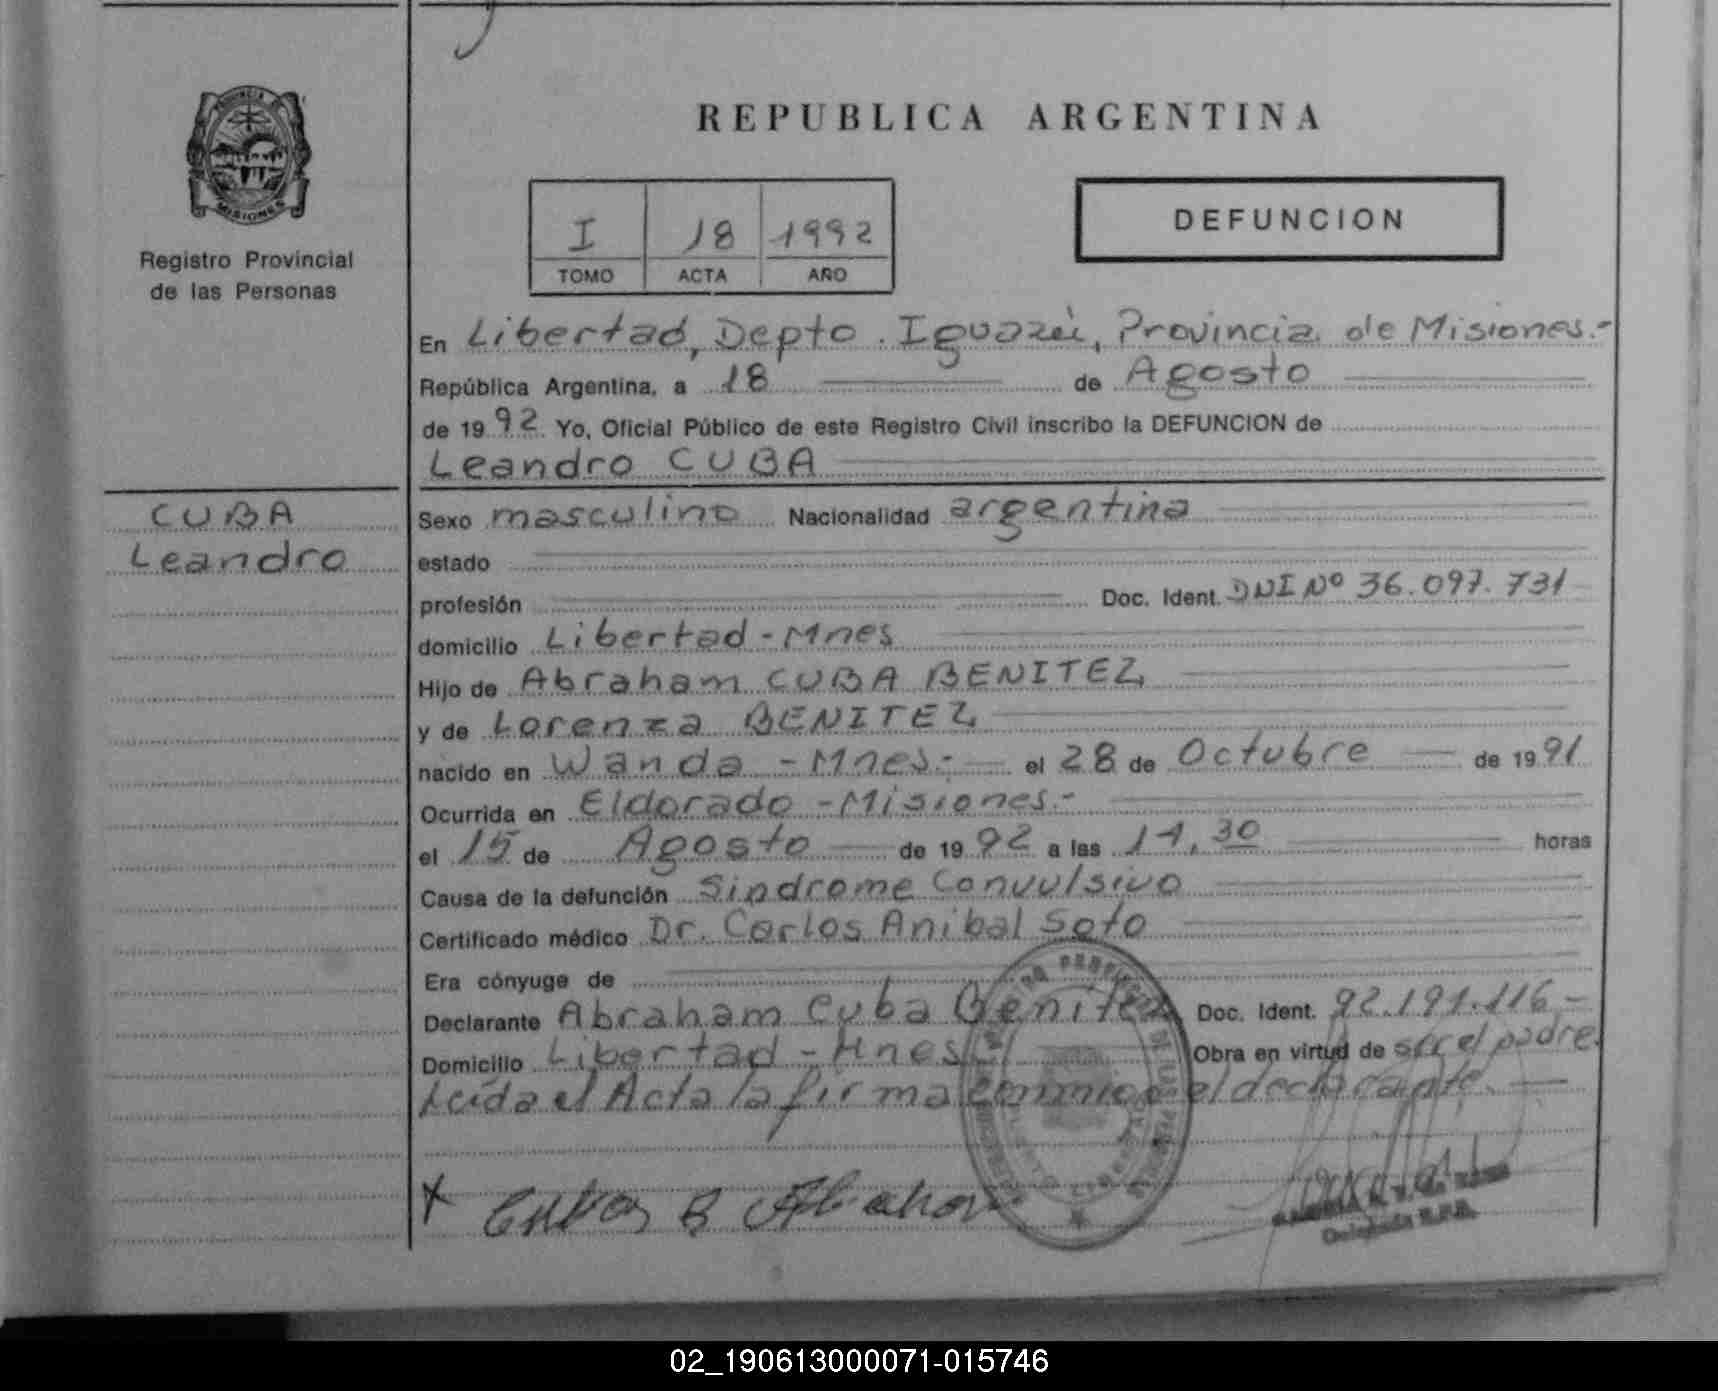 REPUBLICA ARGENTINA
PROVINCIA DE
MISIONES
Registro Provincial
de las Personas
I 18 1992
TOMO ACTA AÑO
DEFUNCION
En Libertad, Depto. Iguazú, Provincia de Misiones.-
República Argentina, a 18 de Agosto
de 1992 Yo, Oficial Público de este Registro Civil inscribo la DEFUNCION de
Leandro CUBA
CUBA
Leandro
Sexo masculino Nacionalidad argentina
estado
profesión Doc. Ident. DNI Nº 36.097.731
domicilio Libertad - Mnes
Hijo de Abraham CUBA BENITEZ
y de Lorenza BENITEZ
nacido en Wanda - Mnes.- el 28 de Octubre de 1991
Ocurrida en Eldorado - Misiones.-
el 15 de Agosto de 1992 a las 14,30 horas
Causa de la defunción Sindrome Convulsivo
Certificado médico Dr. Carlos Anibal Soto
Era cónyuge de
Declarante Abraham Cuba Benitez Doc. Ident. 92.191.116.-
Domicilio Libertad - Mnes Obra en virtud de ser el padre.
Leída el Acta la firma conmigo el declarante.
Delegada R.P.P.
02_190613000071-015746